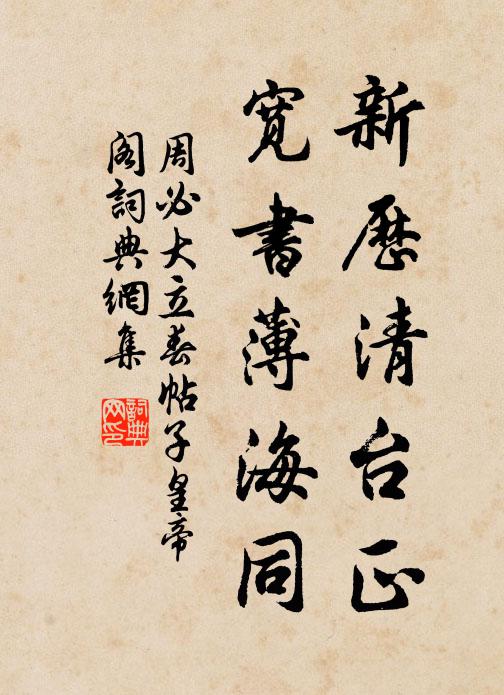 新歷清台正
寬書薄海同
周必大立春帖子皇帝
閣詞典網集
詞典
网印